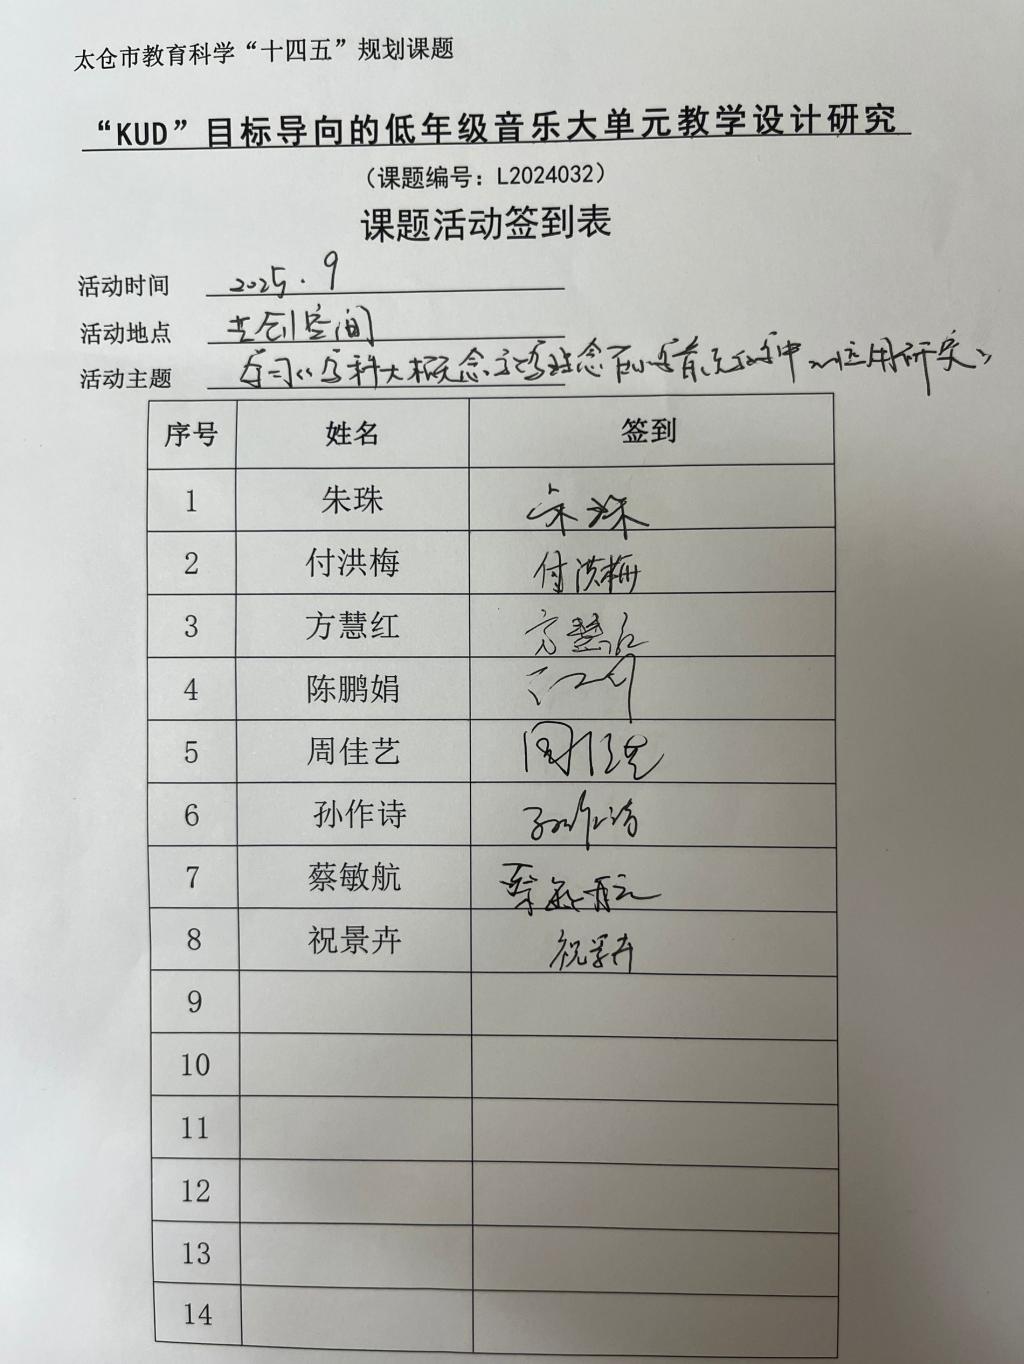 太仓市教育科学“十四五”规划课题
“KUD”目标导向的低年级音乐大单元教学设计研究
（课题编号：L2024032）
课题活动签到表
活动时间 2025.9
活动地点 共创空间
活动主题 学习《学科大概念 中 应用研究》
序号 姓名 签到
1 朱珠 朱珠
2 付洪梅 付洪梅
3 方慧红 方慧红
4 陈鹏娟
5 周佳艺 周佳艺
6 孙作诗 孙作诗
7 蔡敏航 蔡敏航
8 祝景卉 祝景卉
9
10
11
12
13
14